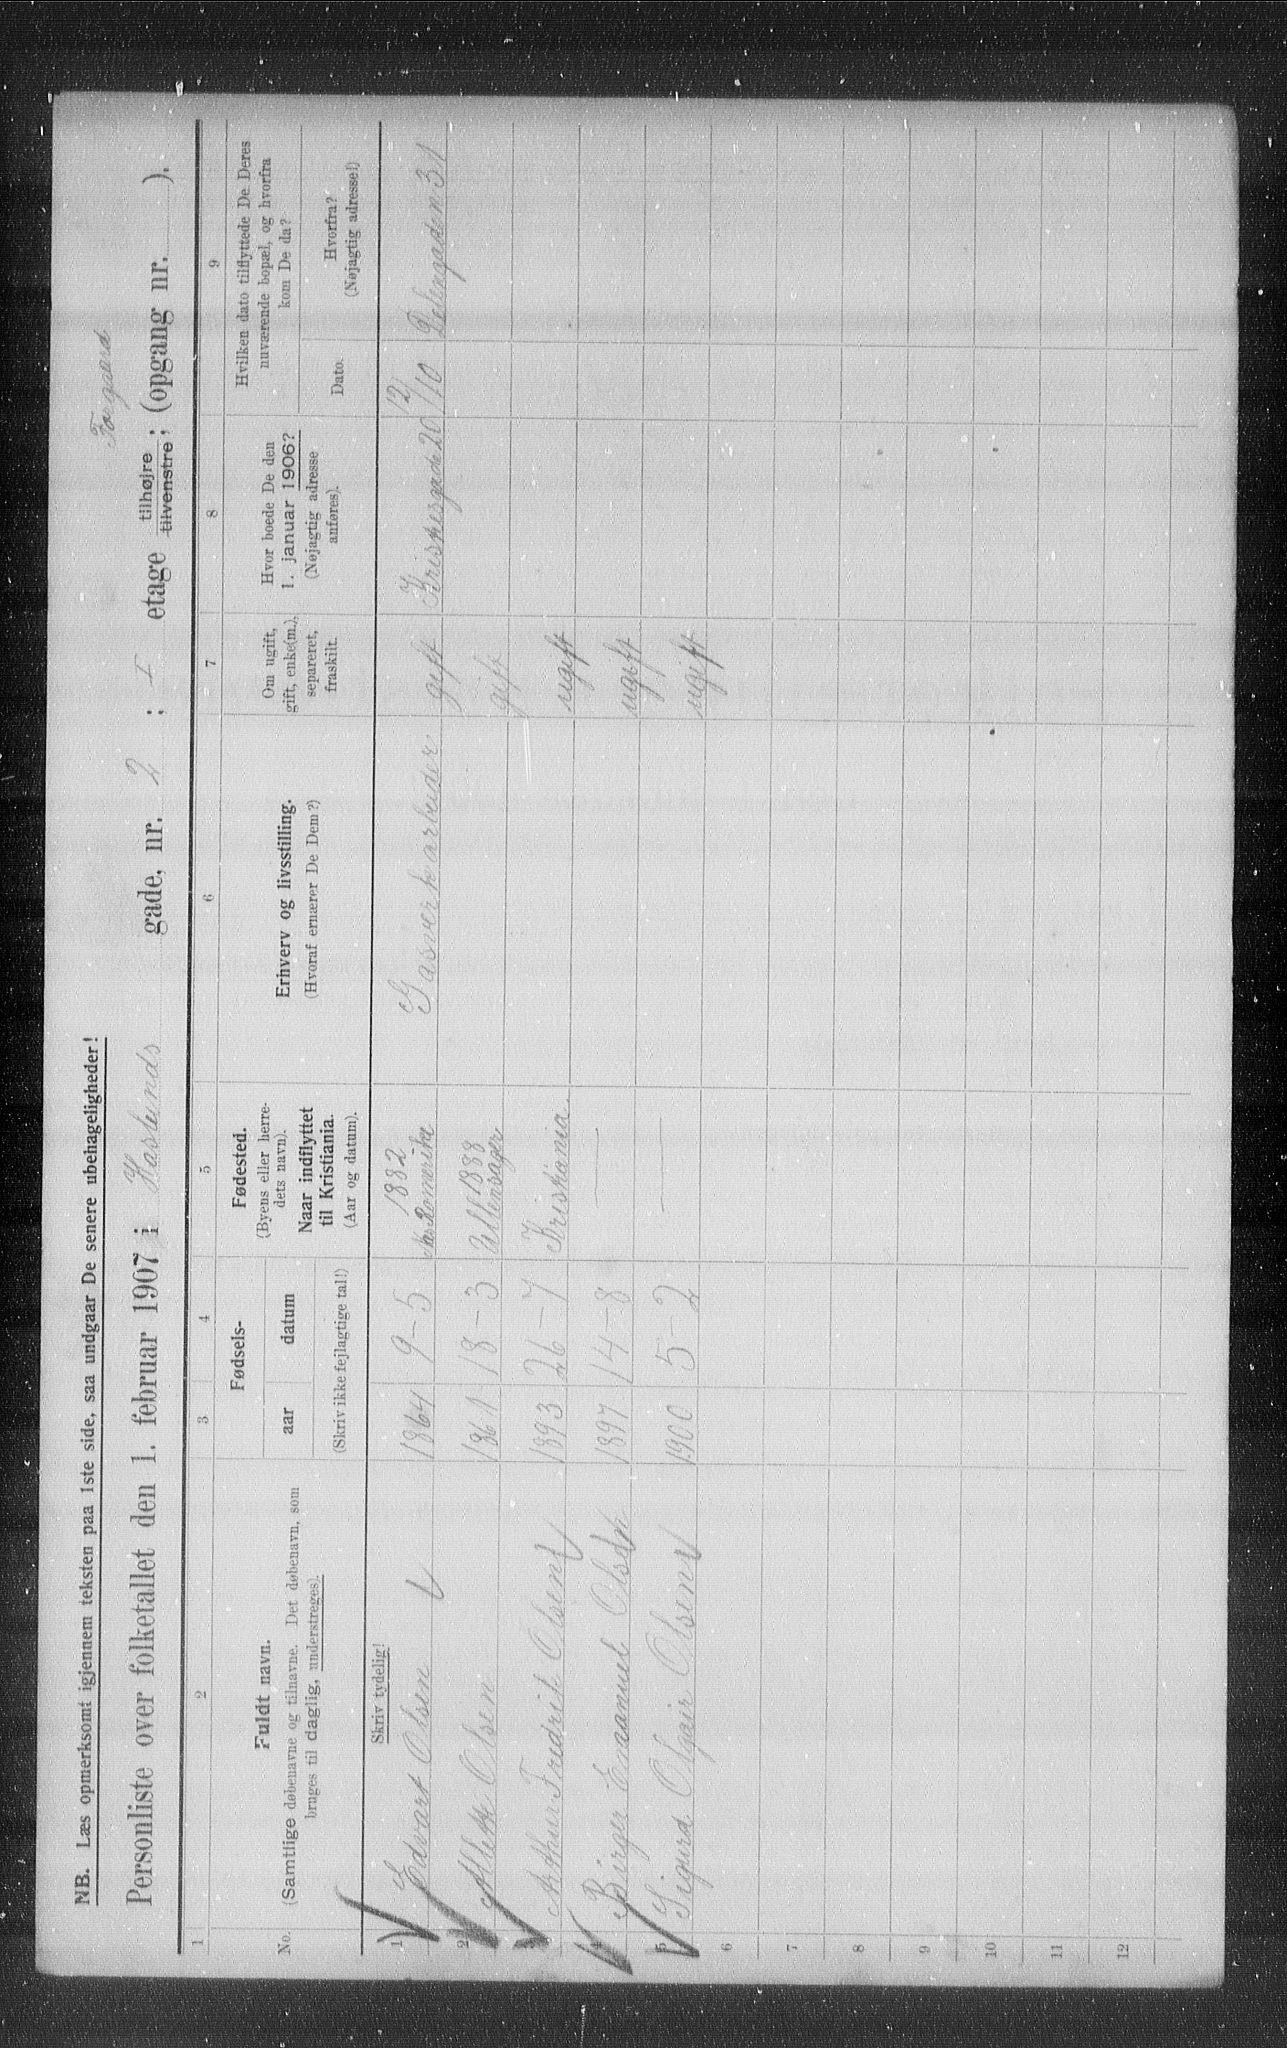 NB. Læs opmerksomt igjennem teksten paa 1ste side, saa undgaar De senere ubehageligheder!
Forgaard
Personliste over folketallet den 1. februar 1907 i Haslunds gade, nr. 2 ; I etage tilhøjre tilvenstre ; (opgang nr. ).
1 2 3 4 5 6 7 8 9
No.
Fuldt navn.
(Samtlige døbenavne og tilnavne. Det døbenavn, som
bruges til daglig, understreges).
Fødsels-
aar datum
(Skriv ikke fejlagtige tal!)
Fødested.
(Byens eller herre-
dets navn).
Naar indflyttet
til Kristiania.
(Aar og datum).
Erhverv og livsstilling.
(Hvoraf ernærer De Dem?)
Om ugift,
gift, enke(m.),
separeret,
fraskilt.
Hvor boede De den
1. januar 1906?
(Nøjagtig adresse
anføres).
Hvilken dato tilflyttede De Deres
nuværende bopæl, og hvorfra
kom De da?
Dato.
Hvorfra?
(Nøjagtig adresse!)
Skriv tydelig!
1 Edvart Olsen 1864 9-5 1882 Nes Romerike Gasverkarbeider gift 20 12/10 31
2 Alette Olsen 1861 18-3 1888 Ullensager gift
3 Arthur Fredrik Olsen 1893 26-7 Kristiania. ugift
4 Birger Emanuel Olsen 1897 14-8 — ugift
5 Sigurd Olgair Olsen 1900 5-2 — ugift
6
7
8
9
10
11
12